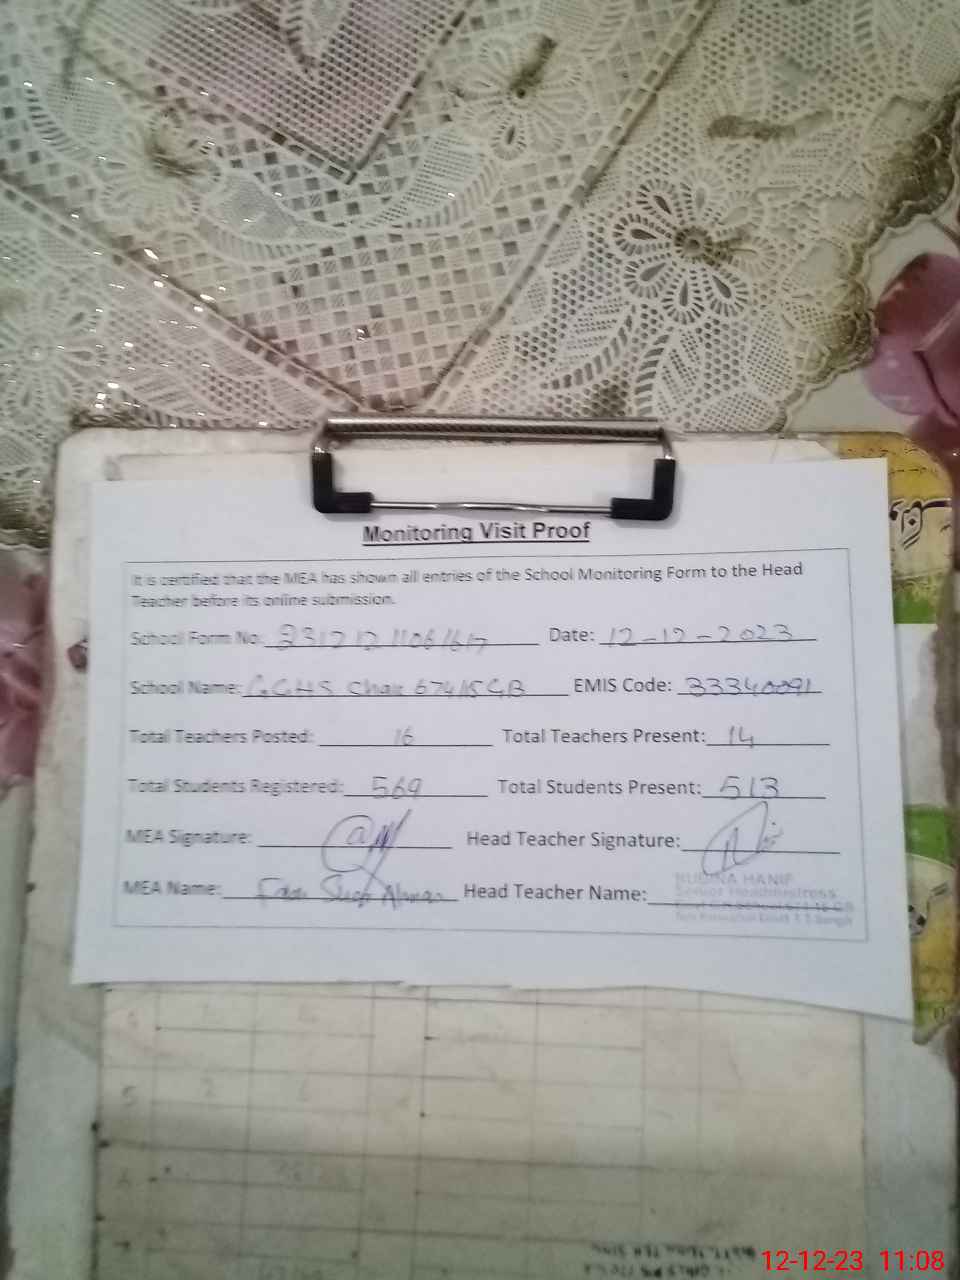 Monitoring Visit Proof
It is certified that the MEA has shown all entries of the School Monitoring Form to the Head
Teacher before its online submission.
School Form No: 23121211061617 Date: 12-12-2023
School Name: GGHS Chak 674/15 GB EMIS Code: 33340091
Total Teachers Posted: 16 Total Teachers Present: 14
Total Students Registered: 569 Total Students Present: 513
MEA Signature: Head Teacher Signature:
MEA Name: Head Teacher Name:
HANIF
Senior Headmistress
5
12-12-23 11:08